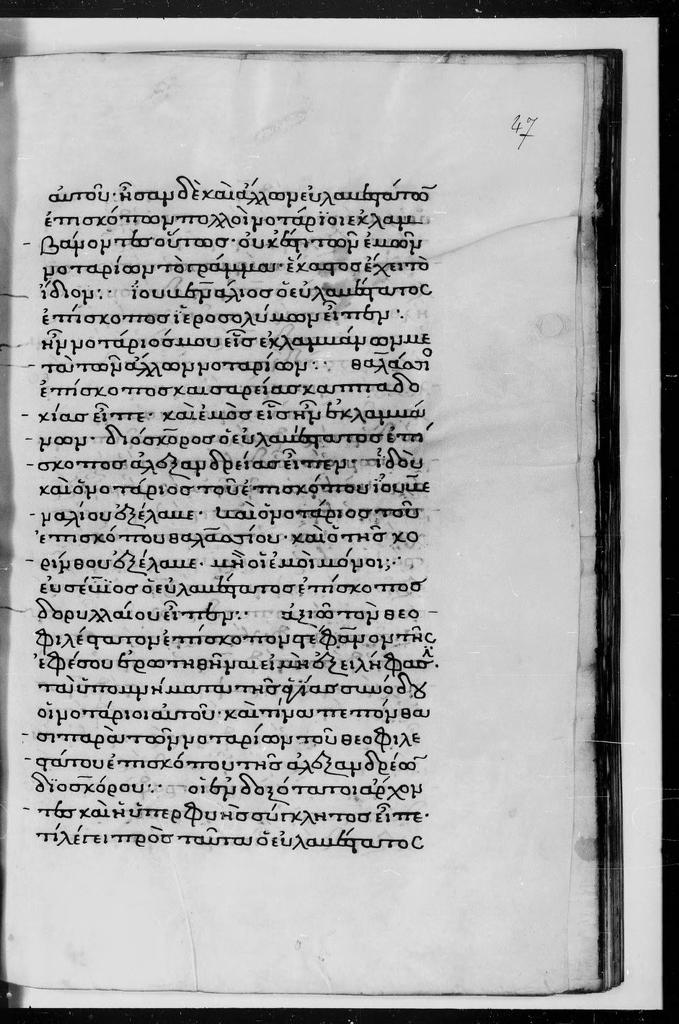 47
αὐτοῦ· ἦσαν δὲ καὶ ἄλλων εὐλαβεστάτων
ἐπισκόπων πολλοὶ νοτάριοι ἐκλαμ
βάνοντες οὕτως· οὐκ ἔστι τῶν ἐμῶν
νοταρίων τὸ γράμμα· ἕκαστος ἔχει τὸ
ἴδιον:· ἰουβενάλιος ὁ εὐλαβέστατος
ἐπίσκοπος ἱεροσολύμων εἶπεν:·
ἦν νοτάριός μου εἷς ἐκλαμβάνων με
τὰ τῶν ἄλλων νοταρίων:· θαλάσσιο
ἐπίσκοπος καισαρείας καππαδο
κίας εἶπε· καὶ ἐμὸς εἷς ἦν ἐκλαμβά
νων· διόσκορος ὁ εὐλαβέστατος ἐπί
σκοπος ἀλεξανδρείας εἶπεν· ἰδοὺ
καὶ ὁ νοτάριος τοῦ ἐπισκόπου ἰουβε
ναλίου ἐξέλαβε· καὶ ὁ νοτάριος τοῦ
ἐπισκόπου θαλασσίου· καὶ ὁ τῆς κο
ρίνθου ἐξέλαβε· μὴ οἱ ἐμοὶ μόνοι;·
εὐσέβιος ὁ εὐλαβέστατος ἐπίσκοπος
δορυλλαίου εἶπεν:· ἀξιῶ τὸν θεο
φιλέστατον ἐπίσκοπον στέφανον τῆς
ἐφέσου ἐρωτηθῆναι εἰ μὴ ἐξειλήφασι
τὰ ὑπομνήματα τῆς ἁγίας συνόδου
οἱ νοτάριοι αὐτοῦ· καὶ τίνα πεπόνθα
σι παρὰ τῶν νοταρίων τοῦ θεοφιλε
στάτου ἐπισκόπου τῆς ἀλεξανδρέων
διοσκόρου:· οἱ ἐνδοξότατοι ἄρχον
τες καὶ ἡ ὑπερφυὴς σύγκλητος εἶπε·
τί λέγει πρὸς ταῦτα ὁ εὐλαβέστατος